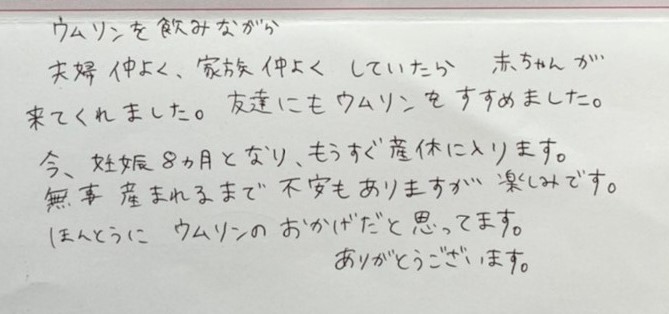 ウムリンを飲みながら
夫婦仲よく、家族仲よく していたら 赤ちゃんが
来てくれました。友達にもウムリンをすすめました。
今、妊娠8ヵ月となり、もうすぐ産休に入ります。
無事 産まれるまで 不安もありますが 楽しみです。
ほんとうに ウムリンの おかげだと思ってます。
ありがとうございます。